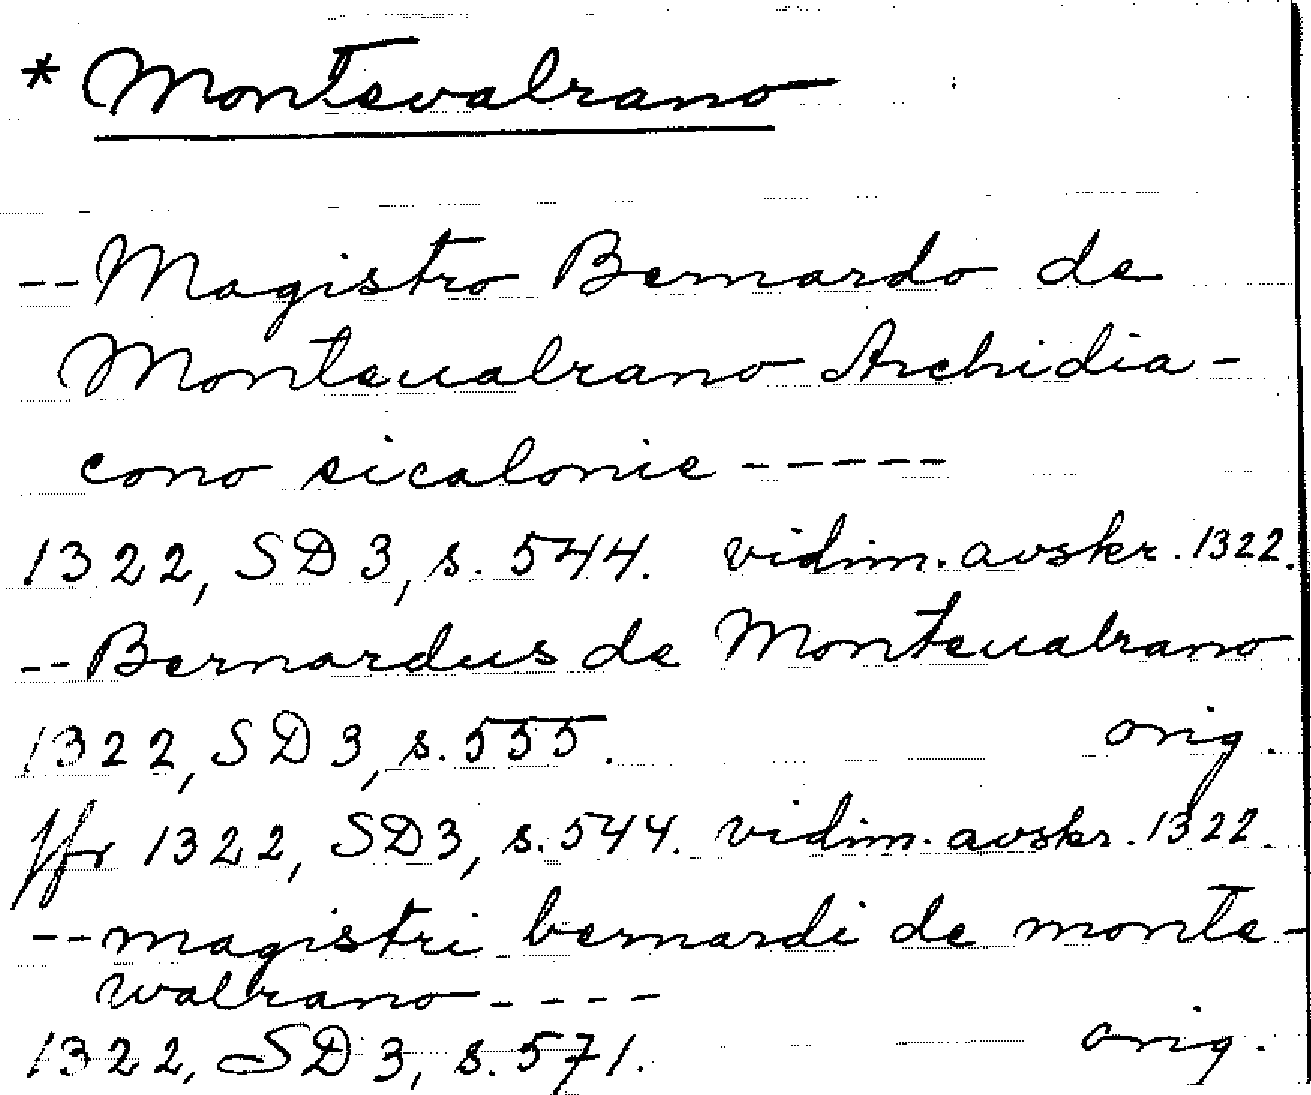 * Montevalrano
-- Magistro Bernardo de
Monteualrano Archidia-
cono sicalonie -----
1322, SD 3, s. 544. vidim. avskr. 1322.
-- Bernardus de Monteualrano
1322, SD 3, s. 555. orig.
Jfr 1322, SD 3, s. 544. vidim. avskr. 1322.
-- magistri bernardi de monte-
walrano ----
1322, SD 3, s. 571. orig.